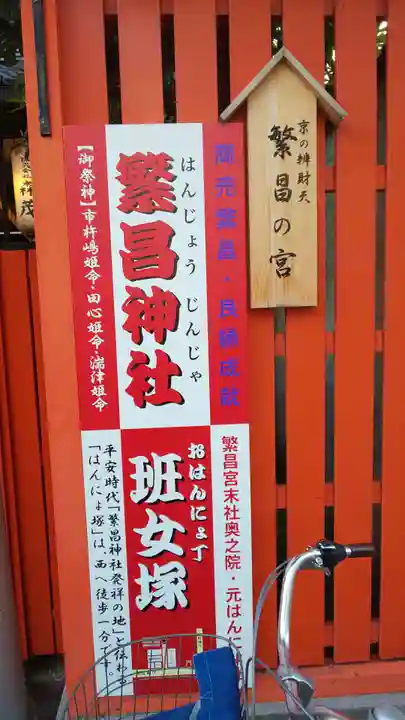 京の辨財天
繁昌の宮
商売繁昌・良縁成就
はんじょう じんじゃ
繁昌神社
【御祭神】市杵嶋姫命・田心姫命・湍津姫命
繁昌宮末社奥之院・元はんに
おはんにょ丁
班女塚
平安時代「繁昌神社発祥の地」と伝わる
「はんにょ塚」は、西へ徒歩一分です。
茂